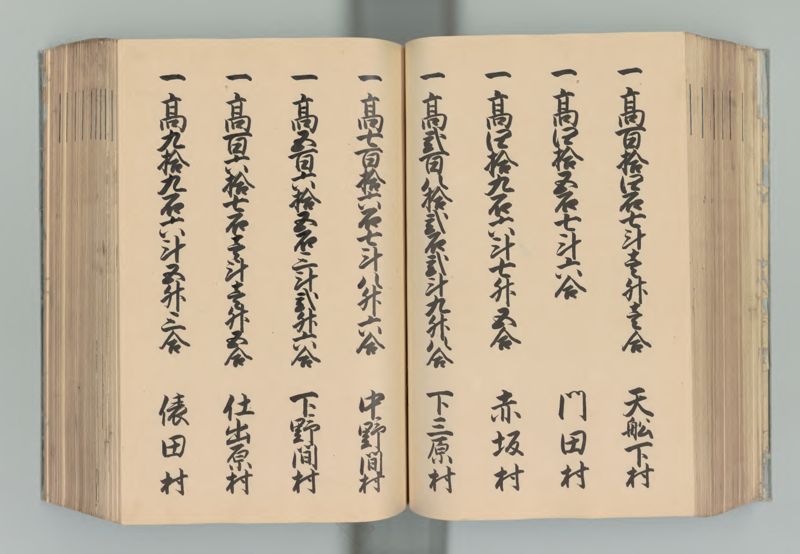 一 高百拾四石七斗壱升壱合 天舩下村
一 高四拾五石七斗六合 門田村
一 高四拾九石六斗七升五合 赤坂村
一 高弐百八拾弐石弐斗九升八合 下三原村
一 高七百拾六石七斗八升六合 中野間村
一 高五百六拾五石三斗弐升六合 下野間村
一 高百六拾七石壱斗壱升五合 仕出原村
一 高九拾九石六斗五升三合 俵田村